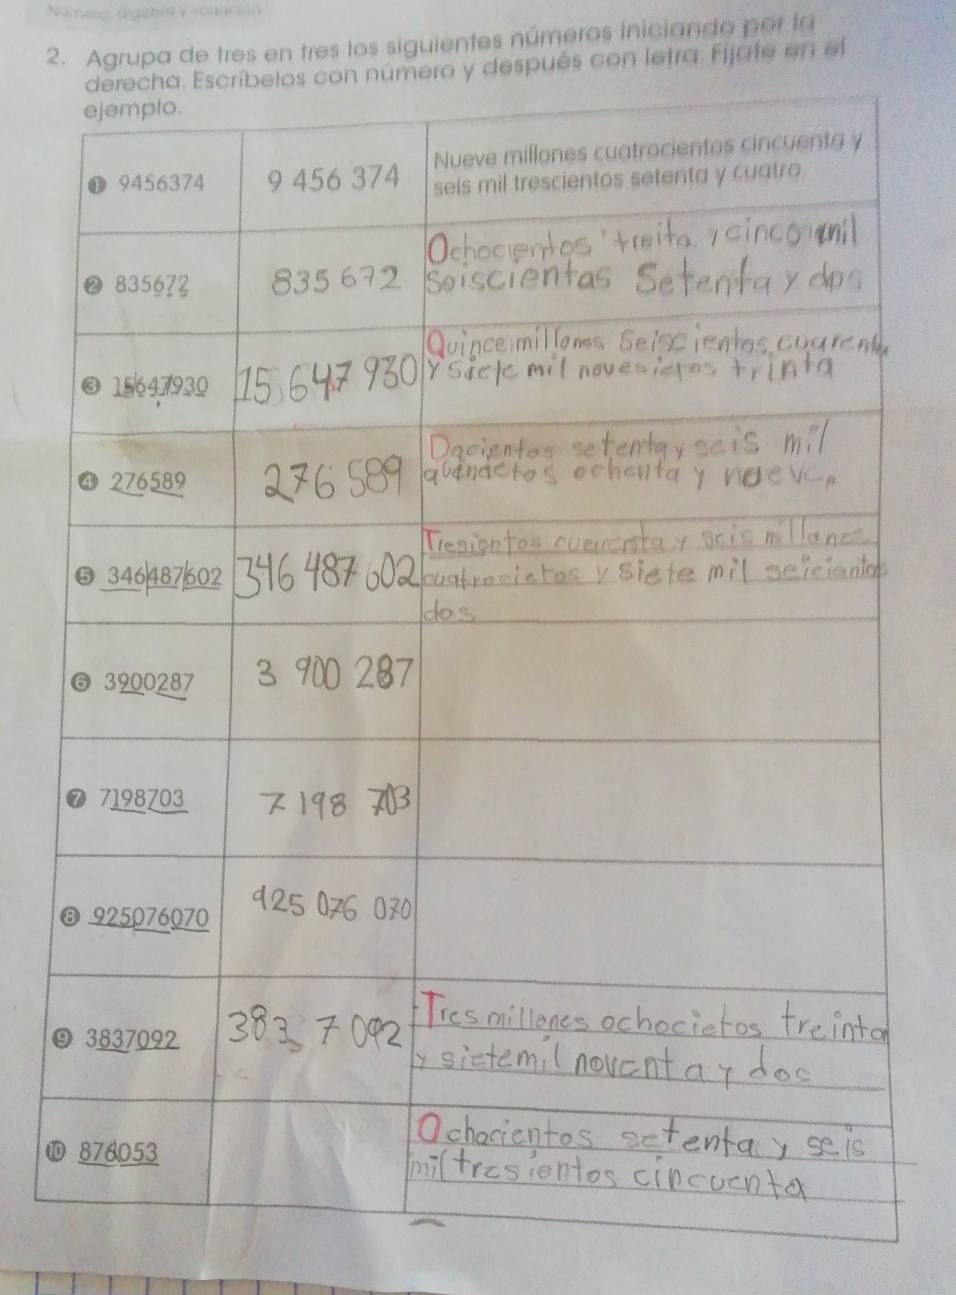 Número, álgebra y variación
2. Agrupa de tres en tres los siguientes números iniciando por la
derecha. Escríbelos con número y después con letra. Fíjate en el
ejemplo.
1 9456374
9 456 374
Nueve millones cuatrocientos cincuenta y
seis mil trescientos setenta y cuatro
2 835672
835 672
Ochocientos treita y cinco mil
seiscientas Setenta y dos
3 15647930
15,647 930
Quince millones seiscientos, cuarenta
y siete mil novecietos trinta
4 276589
276 589
Docientos setenta y seis mil
ochenta y nueve
5 346487602
346 487 602
y seis millones
y siete mil seicientos
dos
6 3900287
3 900 287
7 7198703
7 198 703
8 925076070
925 076 070
9 3837092
383 7 092
Tres millones ochocietos treinta
y siete mil noventa y dos
10 876053
Ochocientos setenta y seis
mil tresientos cincuenta